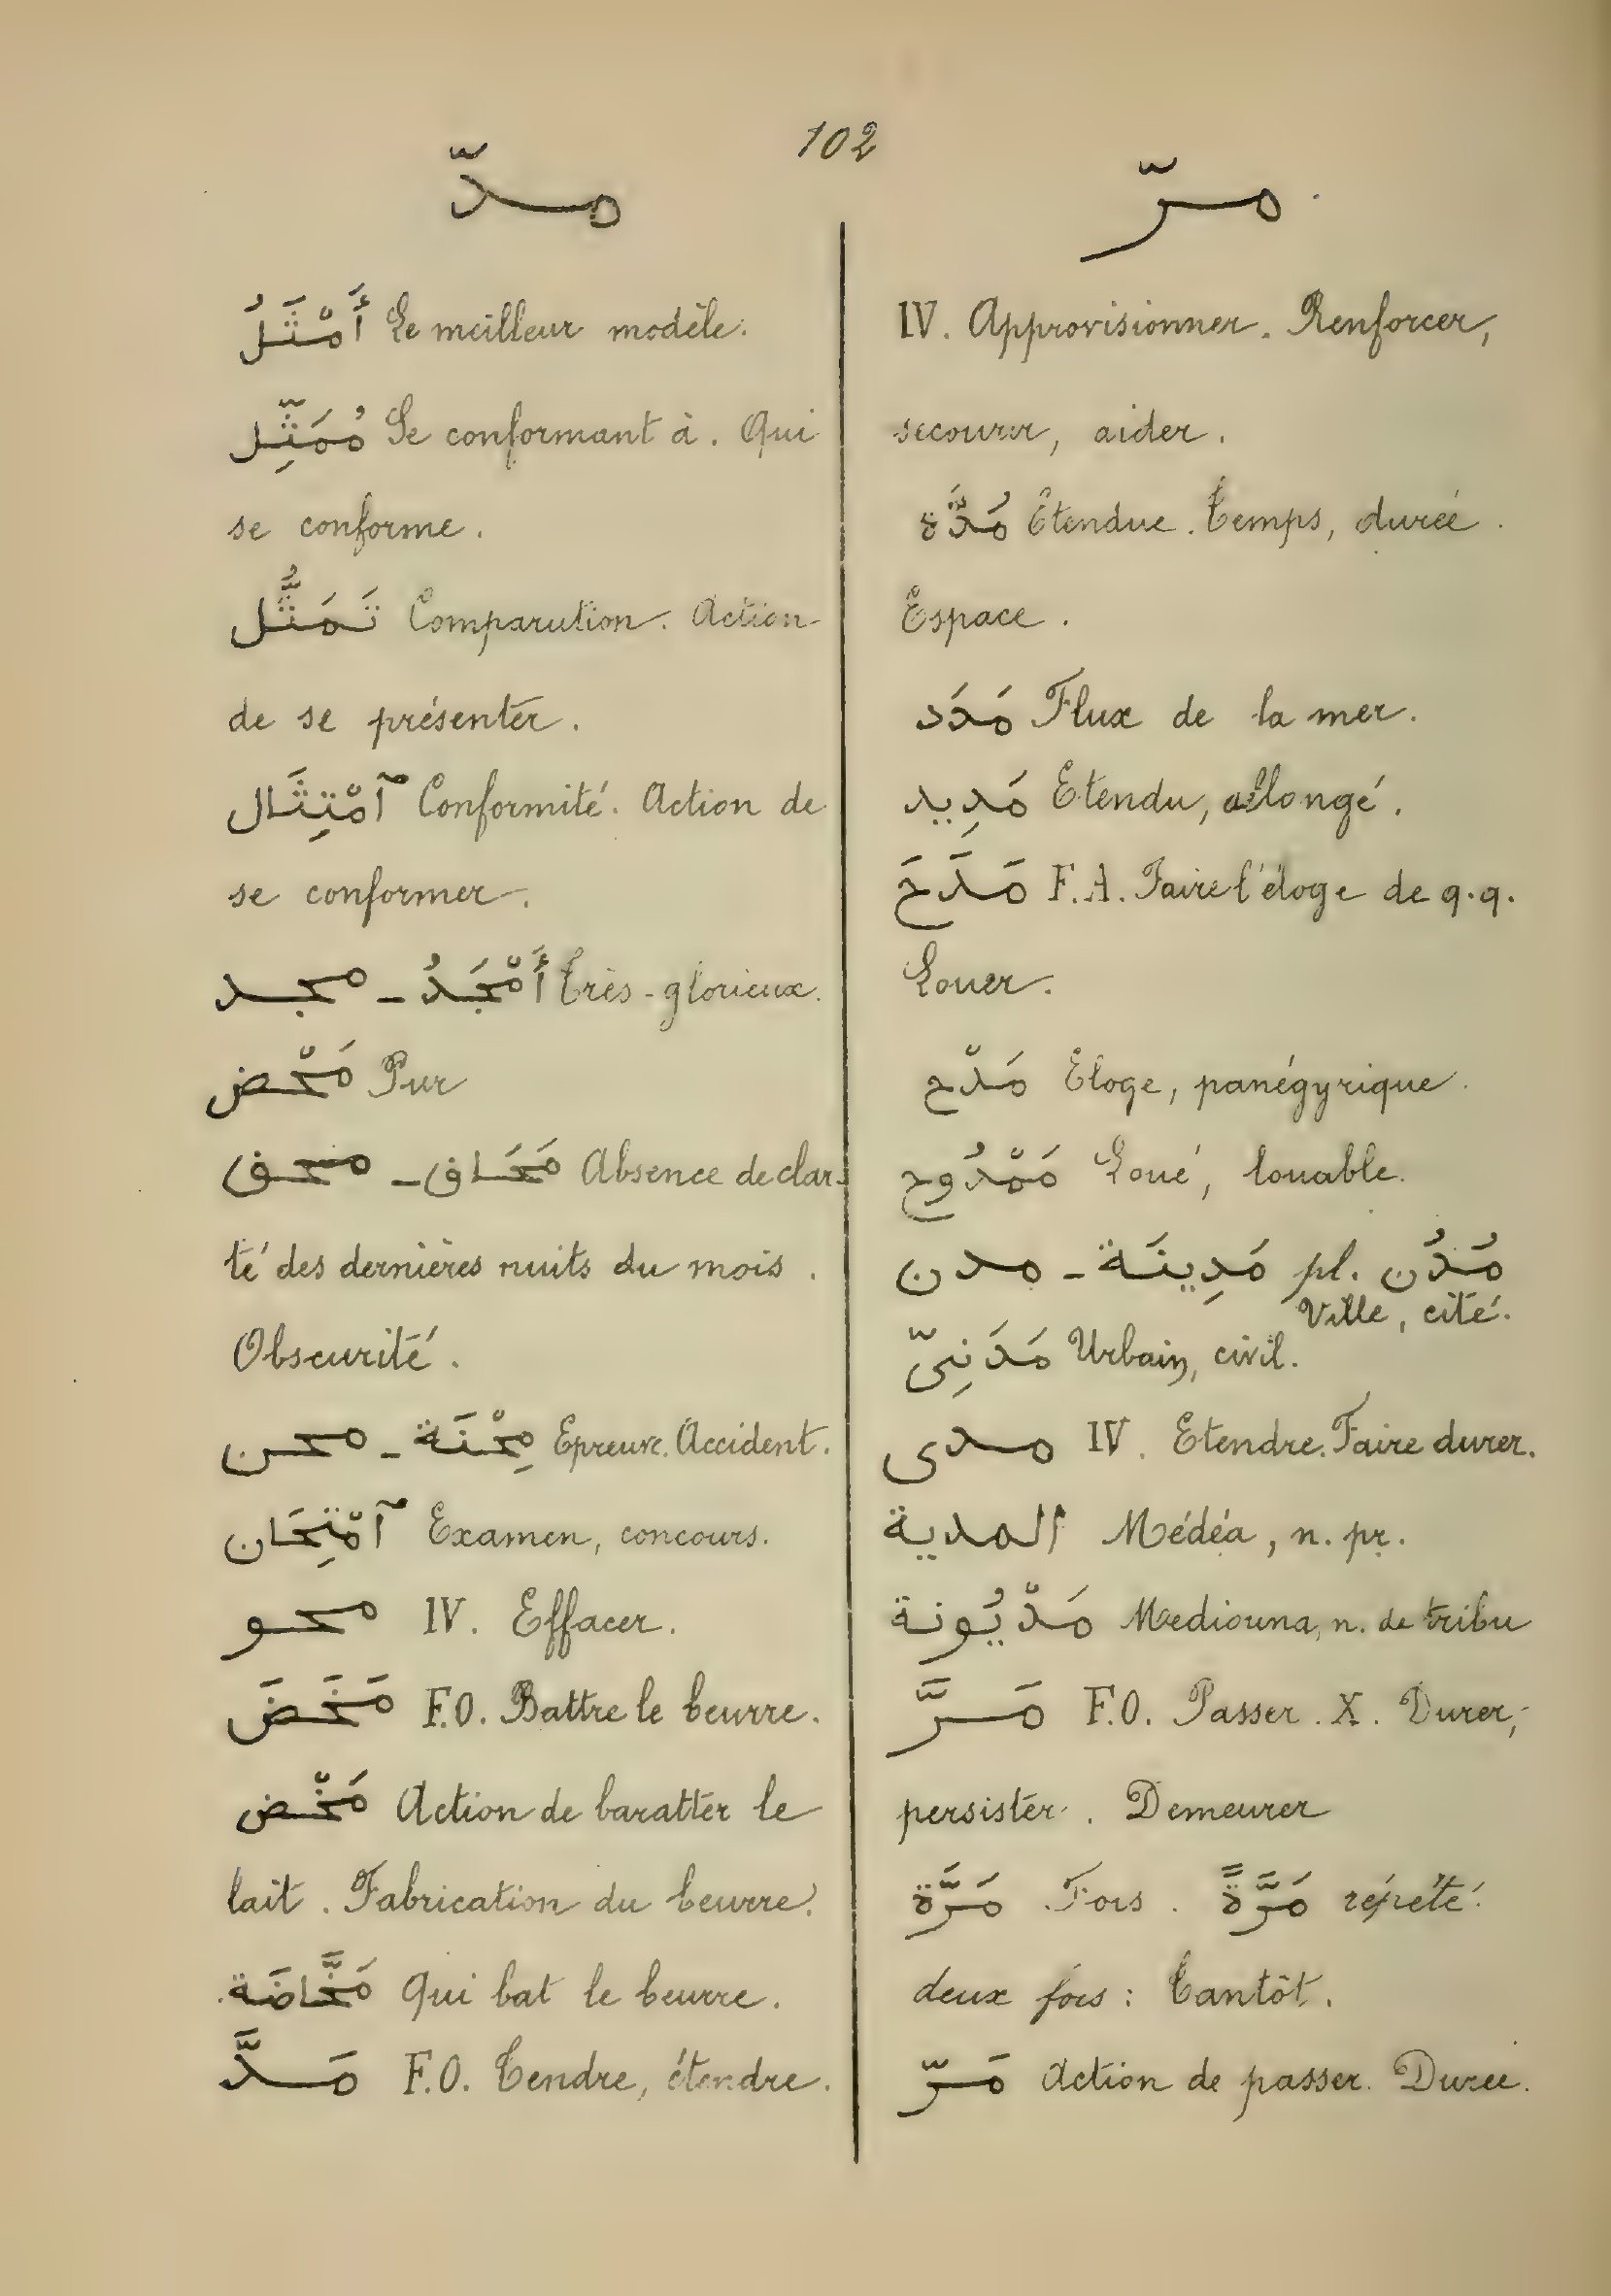 102
مدّ
مرّ
أَمْثَلُ Le meilleur modèle.
مُمَثِّل Se conformant à. Qui
se conforme.
تَمَثُّل Comparution. Action
de se présenter.
آمْتِثَال Conformité. Action de
se conformer.
مجد ـ أَمْجَدُ Très-glorieux.
مَحْض Pur
محق ـ مَحَاق Absence de clar-
té des dernières nuits du mois.
Obscurité.
محن ـ مِحْنَة Epreuve. Accident.
آمْتِحَان Examen, concours.
محو IV. Effacer.
مَخَضَ F.O. Battre le beurre.
مَخْض Action de baratter le
lait. Fabrication du beurre.
مَخَّاضَة Qui bat le beurre.
مَدَّ F.O. Tendre, étendre.
IV. Approvisionner. Renforcer,
secourir, aider.
مُدَّة Etendue. Temps, durée.
Espace.
مَدَد Flux de la mer.
مَدِيد Etendu, allongé.
مَدَحَ F.A. Faire l'éloge de q.q.
Louer.
مَدْح Eloge, panégyrique.
مَمْدُوح Loué, louable.
مدن ـ مَدِينَة pl. مُدُن
Ville, cité.
مَدَنِىّ Urbain, civil.
مدى IV. Etendre. Faire durer.
المدية Médéa, n. pr.
مَدْيُونة Mediouna, n. de tribu
مَرَّ F.O. Passer. X. Durer,
persister. Demeurer
مَرَّة Fois. مَرَّةً répété
deux fois: Tantôt.
مَرّ Action de passer. Durée.